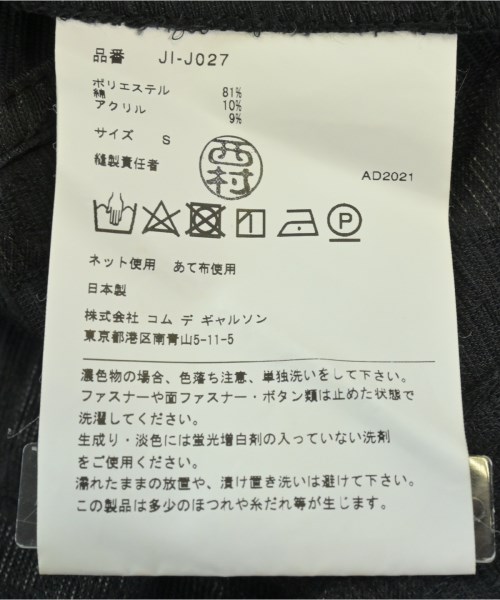 品番 JI-J027
ポリエステル 81%
綿 10%
アクリル 9%
サイズ S
縫製責任者 西村
AD2021
P
ネット使用 あて布使用
日本製
株式会社 コム デ ギャルソン
東京都港区南青山5-11-5
濃色物の場合、色落ち注意、単独洗いをして下さい。
ファスナーや面ファスナー・ボタン類は止めた状態で
洗濯してください。
生成り・淡色には蛍光増白剤の入っていない洗剤
をご使用ください。
濡れたままの放置や、漬け置き洗いは避けて下さい。
この製品は多少のほつれや糸だれ等が生じます。